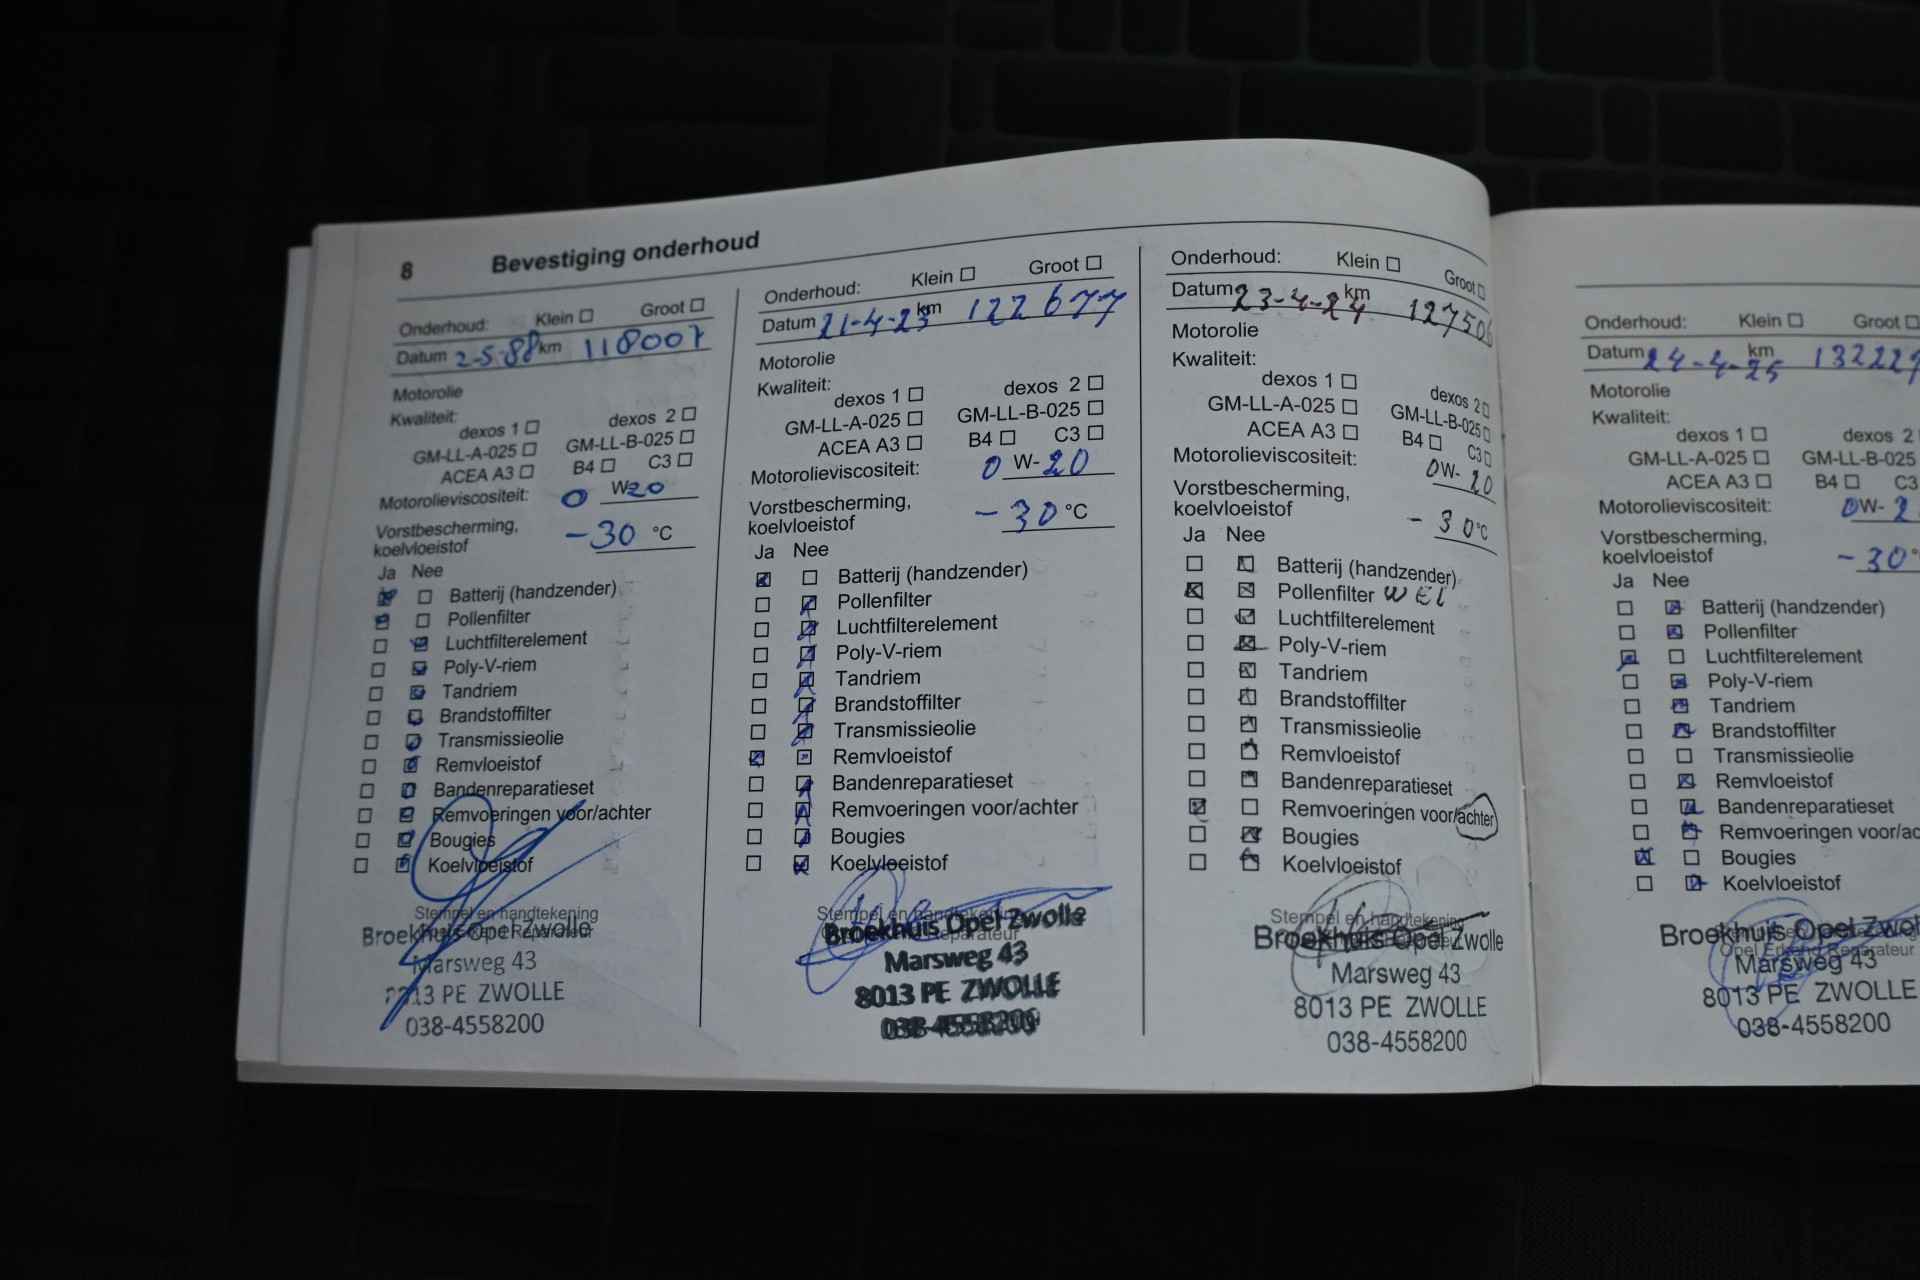 8 Bevestiging onderhoud
Onderhoud: Klein ☐ Groot ☐
Datum 2-5-88 km 118007
Motorolie
Kwaliteit:
dexos 1 ☐ dexos 2 ☐
GM-LL-A-025 ☐ GM-LL-B-025 ☐
ACEA A3 ☐ B4 ☐ C3 ☐
Motorolieviscositeit: 0 W20
Vorstbescherming,
koelvloeistof -30 °C
Ja Nee
Batterij (handzender)
Pollenfilter
Luchtfilterelement
Poly-V-riem
Tandriem
Brandstoffilter
Transmissieolie
Remvloeistof
Bandenreparatieset
Remvoeringen voor/achter
Bougies
Koelvloeistof
Stempel en handtekening
Broekhuis Opel Zwolle
Marsweg 43
8013 PE ZWOLLE
038-4558200
Onderhoud: Klein ☐ Groot ☐
Datum 21-4-23 km 122677
Motorolie
Kwaliteit:
dexos 1 ☐ dexos 2 ☐
GM-LL-A-025 ☐ GM-LL-B-025 ☐
ACEA A3 ☐ B4 ☐ C3 ☐
Motorolieviscositeit: 0 W-20
Vorstbescherming,
koelvloeistof -30 °C
Ja Nee
Batterij (handzender)
Pollenfilter
Luchtfilterelement
Poly-V-riem
Tandriem
Brandstoffilter
Transmissieolie
Remvloeistof
Bandenreparatieset
Remvoeringen voor/achter
Bougies
Koelvloeistof
Stempel en handtekening
Broekhuis Opel Zwolle
Marsweg 43
8013 PE ZWOLLE
038-4558200
Onderhoud: Klein ☐ Groot ☐
Datum 23-4-24 km 127506
Motorolie
Kwaliteit:
dexos 1 ☐ dexos 2 ☐
GM-LL-A-025 ☐ GM-LL-B-025 ☐
ACEA A3 ☐ B4 ☐ C3 ☐
Motorolieviscositeit: 0W-20
Vorstbescherming,
koelvloeistof -30 °C
Ja Nee
Batterij (handzender)
Pollenfilter WEL
Luchtfilterelement
Poly-V-riem
Tandriem
Brandstoffilter
Transmissieolie
Remvloeistof
Bandenreparatieset
Remvoeringen voor/achter
Bougies
Koelvloeistof
Stempel en handtekening
Broekhuis Opel Zwolle
Marsweg 43
8013 PE ZWOLLE
038-4558200
Onderhoud: Klein ☐ Groot ☐
Datum 24-4-25 km 132229
Motorolie
Kwaliteit:
dexos 1 ☐ dexos 2
GM-LL-A-025 ☐ GM-LL-B-025
ACEA A3 ☐ B4 ☐ C3
Motorolieviscositeit: 0W-2
Vorstbescherming,
koelvloeistof -30°
Ja Nee
Batterij (handzender)
Pollenfilter
Luchtfilterelement
Poly-V-riem
Tandriem
Brandstoffilter
Transmissieolie
Remvloeistof
Bandenreparatieset
Remvoeringen voor/ac
Bougies
Koelvloeistof
Broekhuis Opel Zwol
Opel Erkend Reparateur
Marsweg 43
8013 PE ZWOLLE
038-4558200